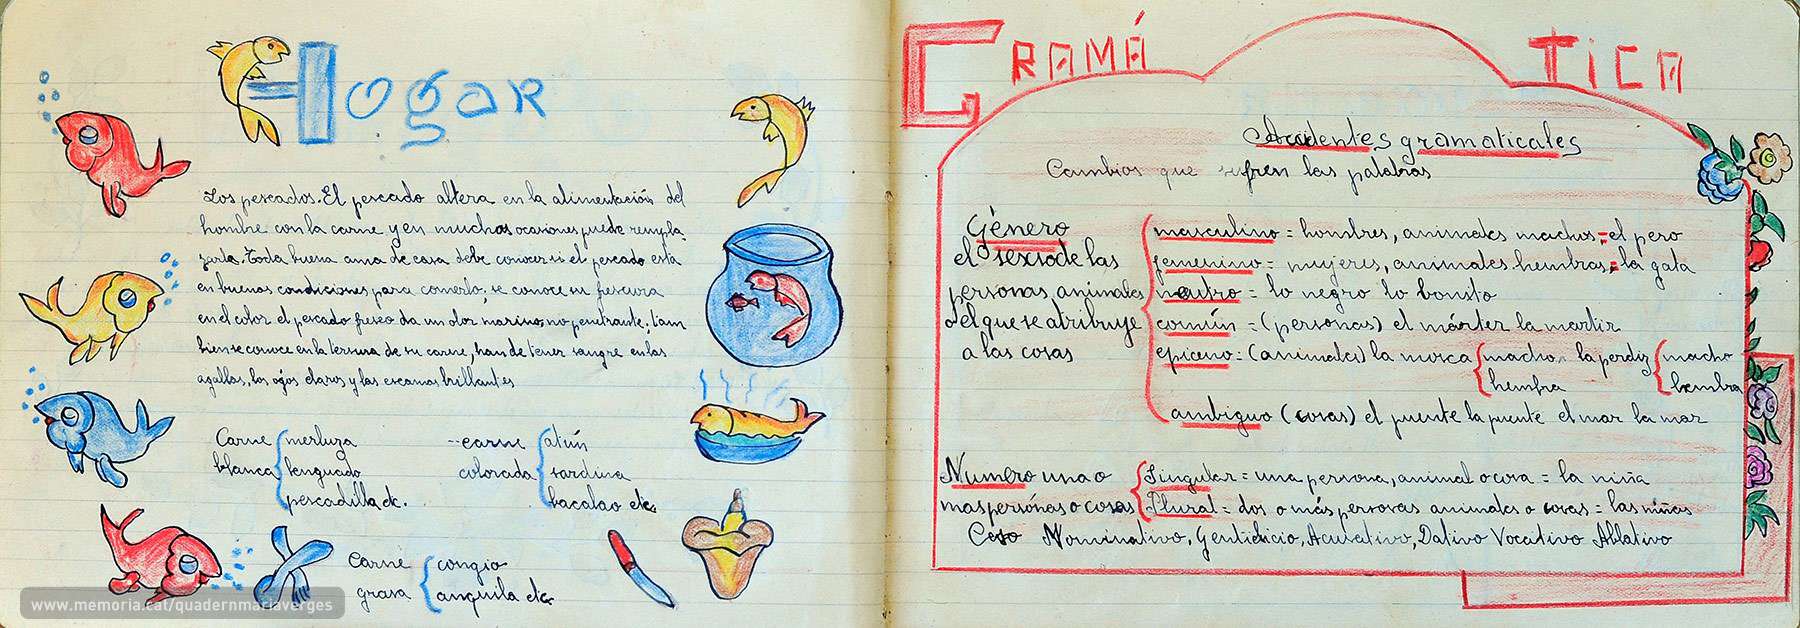 Hogar
Los pescados. El pescado altera en la alimentación del
hombre con la carne y en muchas ocasiones puede rempla-
zarla. Toda buena ama de casa debe conocer si el pescado esta
en buenas condiciones para comerlo; se conoce su frescura
en el color el pescado fresco da un olor marino, no penetrante; tam
bien se conoce en la tersura de su carne, han de tener sangre en las
agallas, los ojos claros y las escamas brillantes
Carne blanca { merluza
lenguado
pescadilla etc.
carne colorada { atún
sardina
bacalao etc.
Carne grasa { congio
anguila etc
GRAMÁTICA
Accidentes gramaticales
Cambios que sufren las palabras
Género
el sexo de las
personas, animales
o el que se atribuye
a las cosas
masculino = hombres, animales machos = el pero
femenino = mujeres, animales hembras = la gata
neutro = lo negro lo bonito
común = (personas) el márter la martir
epiceno = (animales) la mosca { macho hembra la perdiz { macho hembra
ambiguo (cosas) el puente la puente el mar la mar
Numero una o
mas persónas o cosas
Singular = una persona, animal o cosa = la niña
Plural = dos o más personas animales o cosas = las niñas
Caso Nominativo, Acusativo, Dativo Vocativo Ablativo
www.memoria.cat/quadernmariaverges